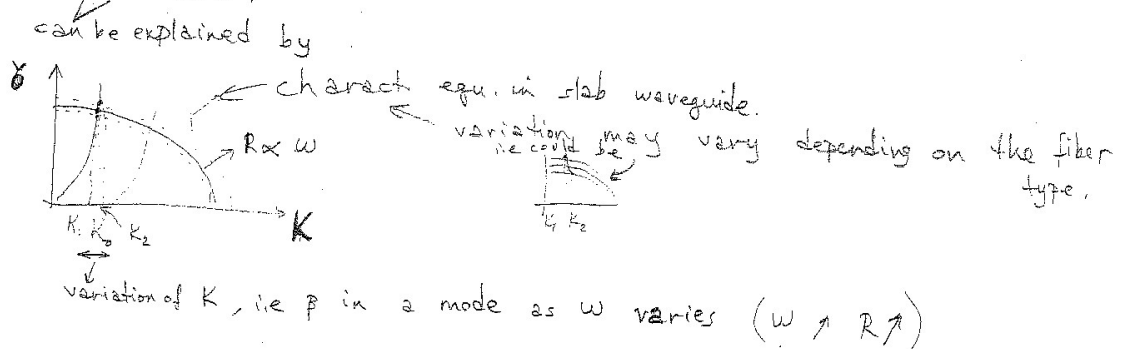 can be explained by
γ
charact equ. in slab waveguide.
variation may vary depending on the fiber
i.e could be
type.
R ∝ ω
K₁ K₀ K₂
K
K₁ K₂
variation of K, i.e β in a mode as ω varies (ω ↗ R ↗)